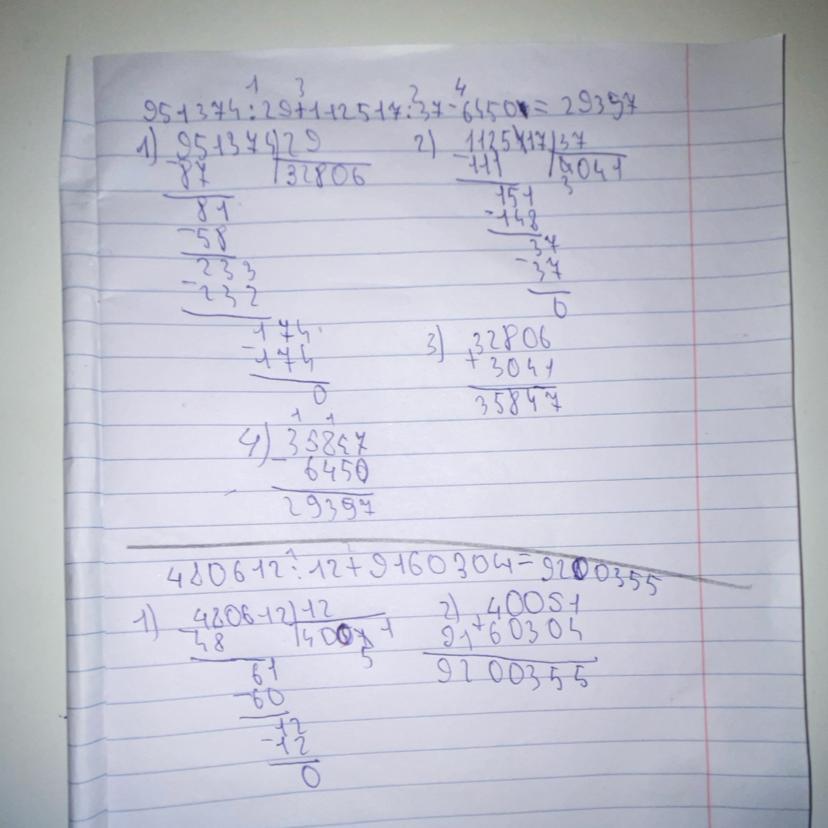 1 3 2 4
951374:29+112517:37-6450=29397
1) 951374 29 2) 112517 37
-87 32806 -111 3041
81 151
-58 -148
233 37
-232 -37
174 0
-174 3) 32806
0 + 3041
35847
1 1
4) 35847
- 6450
29397
1
480612:12+9160304=9200355
1) 480612 12 2) 40051
48 40051 + 9160304
61 9200355
-60
12
-12
0